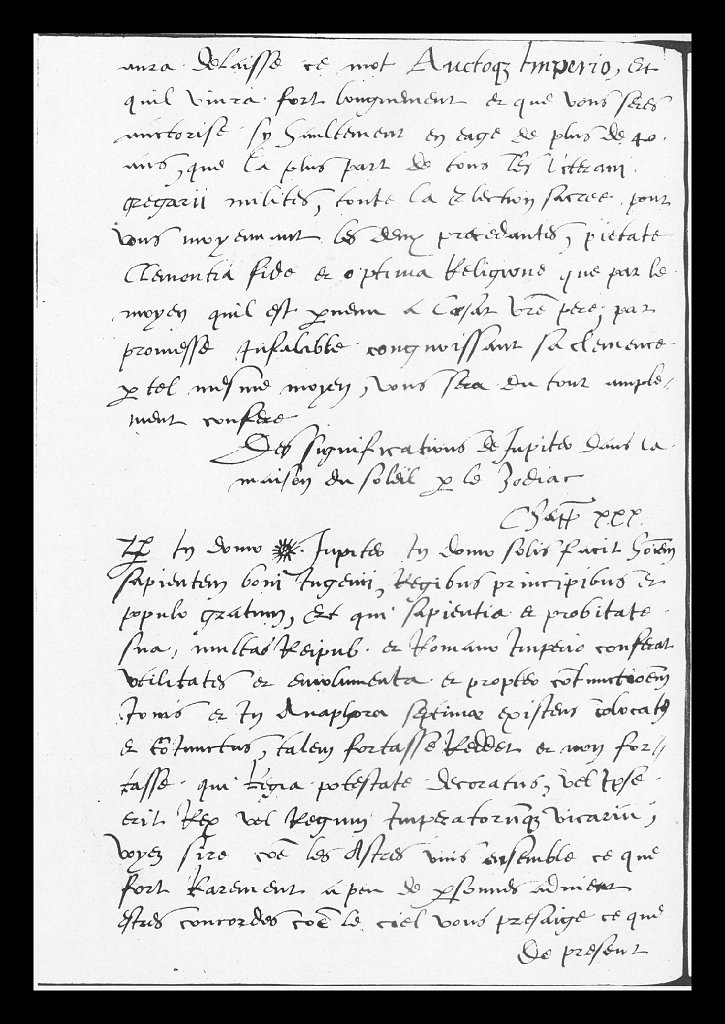 aura delaisse ce mot Auctoq; Imperio, et
quil vivra fort longuement et que vous seres
auctorise sy haultement en eage de plus de 40
ans, que la plus part de tous les veterani
gregarii milites, toute la election sacree pour
vous moyennant les deux precedantes, pietate
Clementia fide et optima Religione que par le
moyen quil est pvenu a Cesar vre pere, par
promesse Infalible congnoissant sa clemence
p tel mesme moyen, vous sera du tout ample-
ment confere
Des significations de Jupiter dans la
maison du soleil p le Zodiac
Chapt xxx.
In domo Jupiter In domo solis facit hoiem
sapientem boni Ingenii, Regibus principibus et
populo gratum, Et qui sapientia et probitate
sua, multas Reipub. et Romano Imperio conferat
utilitates et emolumenta et propter coniunctioem
Iovis et In Anaphora septimae existens colocatq
et coniunctus, talem fortasse Reddet et non for-
tasse qui Regia potestate decoratus, vel Ipse
erit Rex vel Regum Imperatorumq; vicarius,
voyez sire coe les Astres unis ensemble ce que
fort Rarement a peu de psonnes advient
estres concordes coe le ciel vous presaige ce que
de present